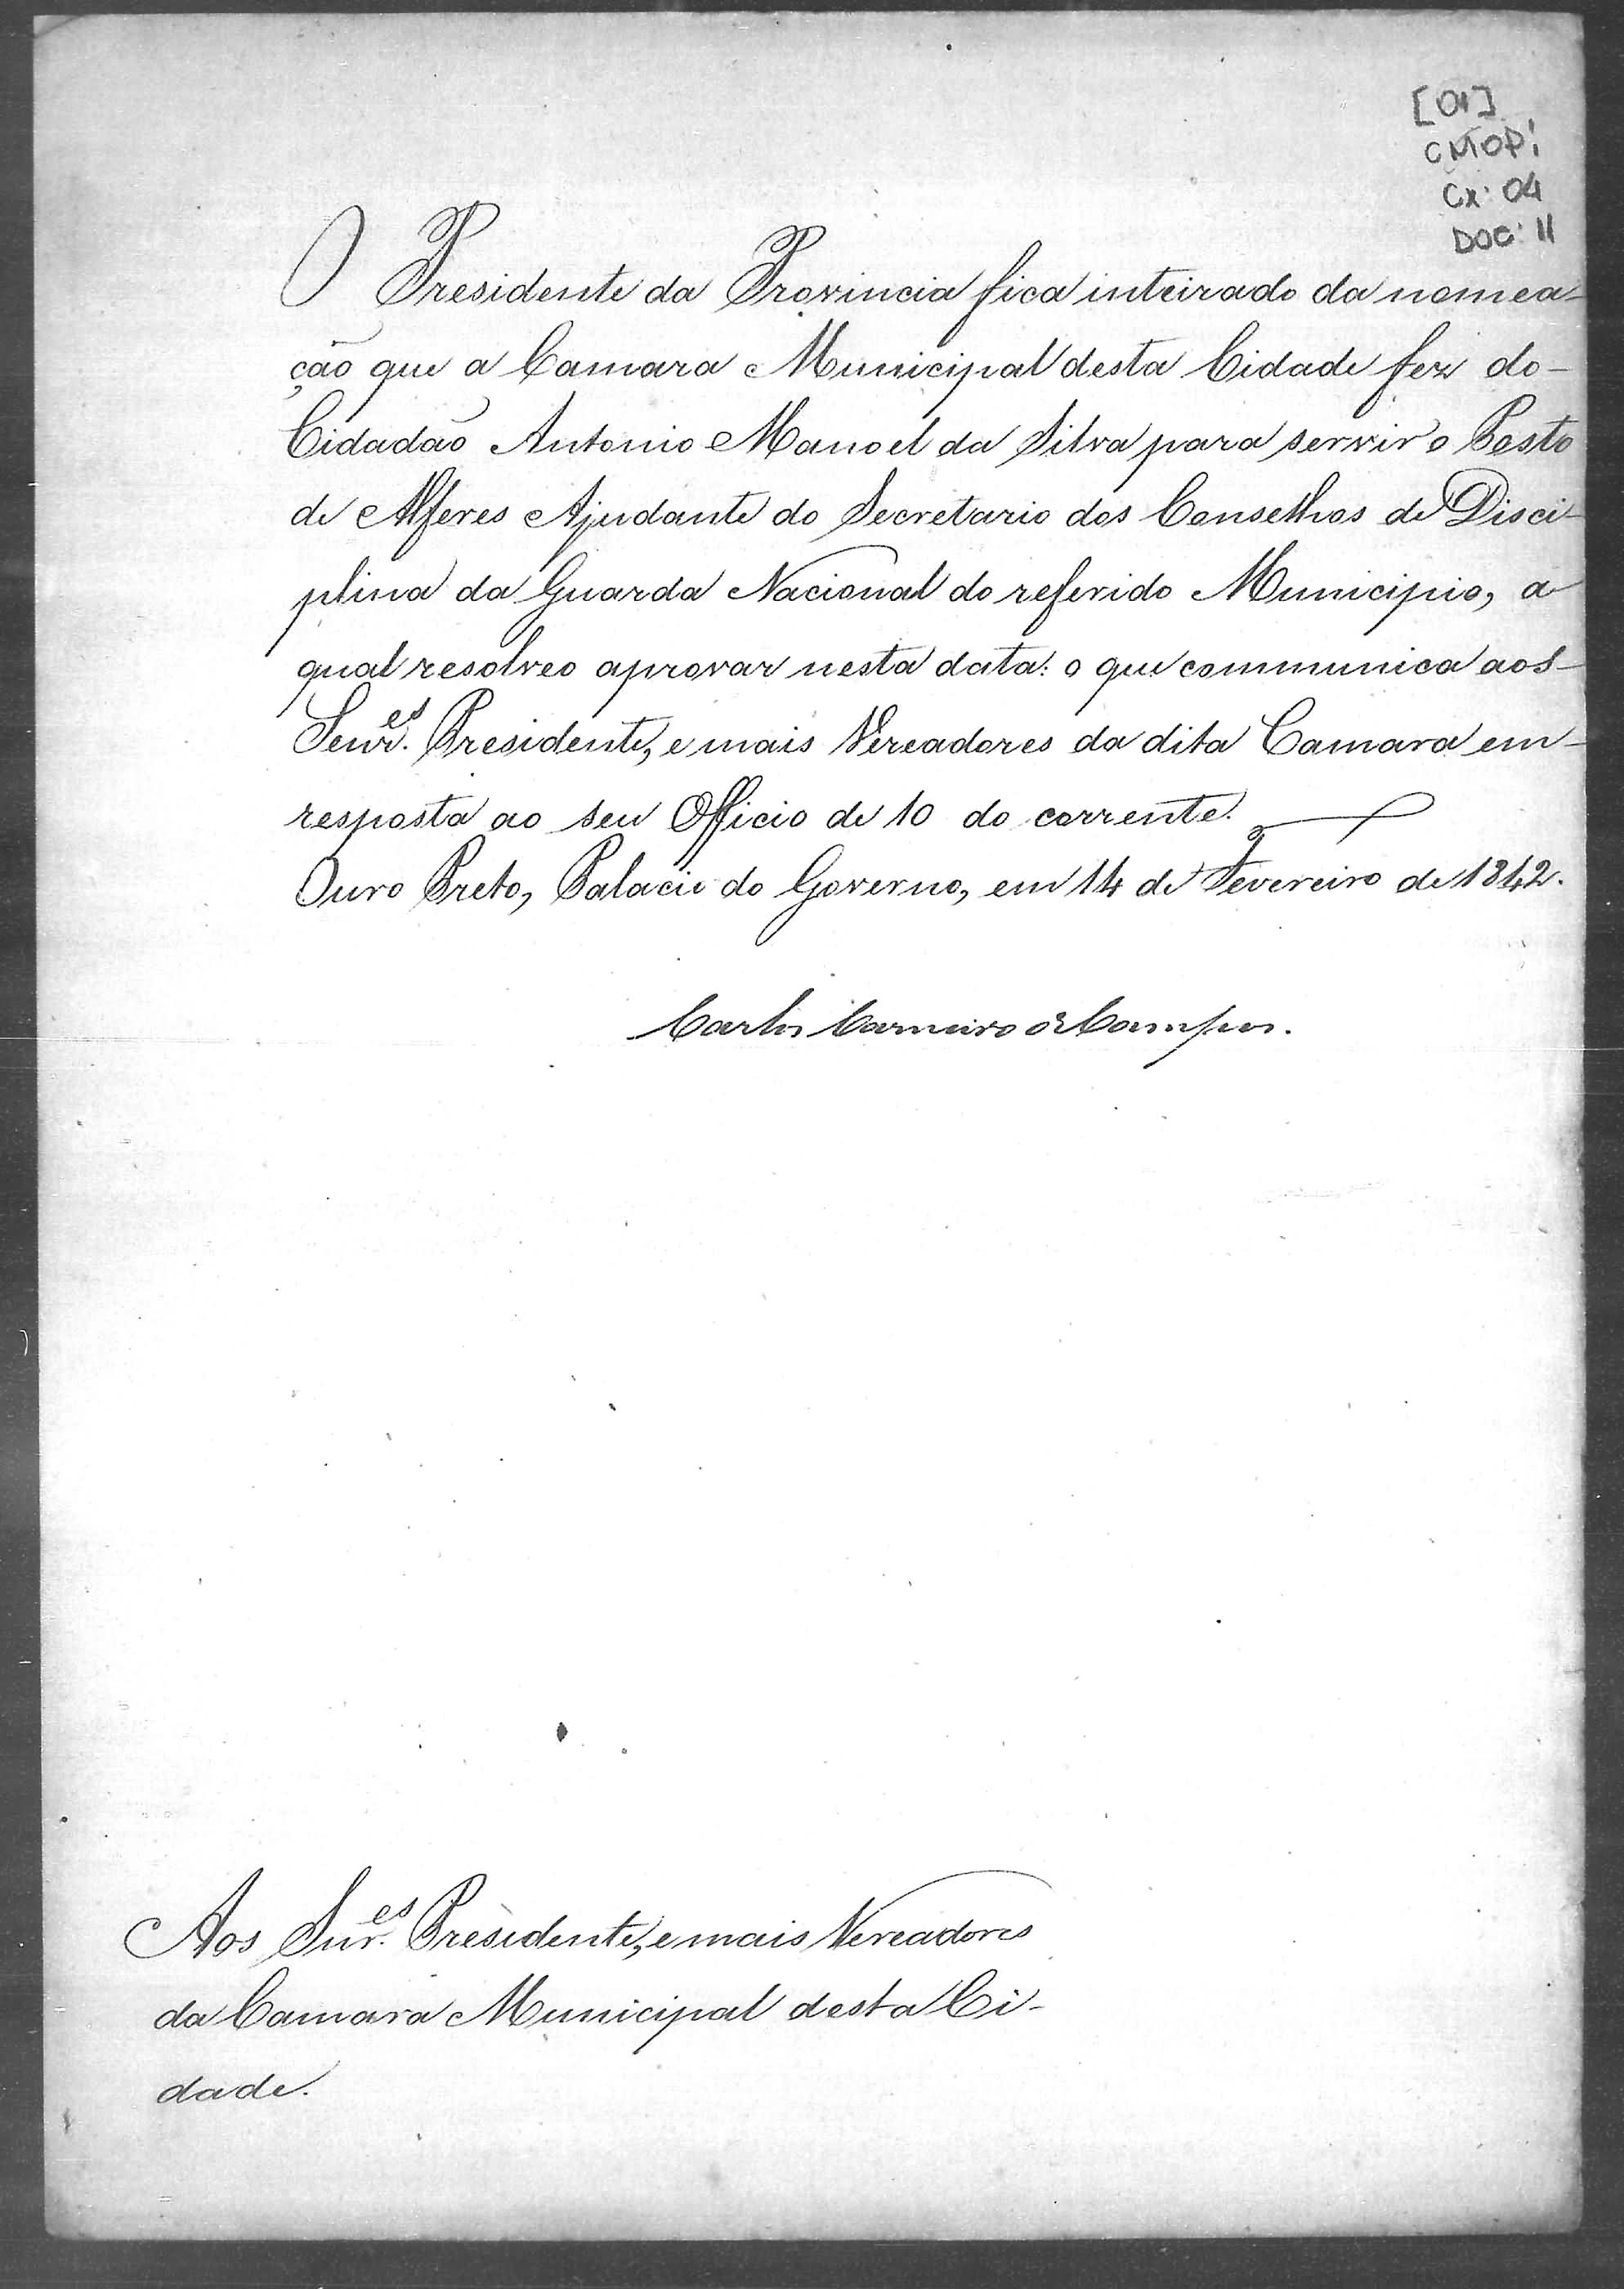 [01]
CMOP
Cx: 04
DOC: 11
O Presidente da Provincia fica inteirado da nomea-
ção que a Camara Municipal desta Cidade fez do-
Cidadão Antonio Manoel da Silva para servir o Posto
de Alferes Ajudante do Secretario dos Conselhos de Disci-
plina da Guarda Nacional do referido Municipio, a
qual resolveo aprovar nesta data: o que communica aos-
Senr.es Presidente, e mais Vereadores da dita Camara em-
resposta ao seu Officio de 10 do corrente.
Ouro Preto, Palacio do Governo, em 14 de Fevereiro de 1842.
Carlos Carneiro de Campos.
Aos Snr.es Presidente, e mais Vereadores
da Camara Municipal desta Ci-
dade.